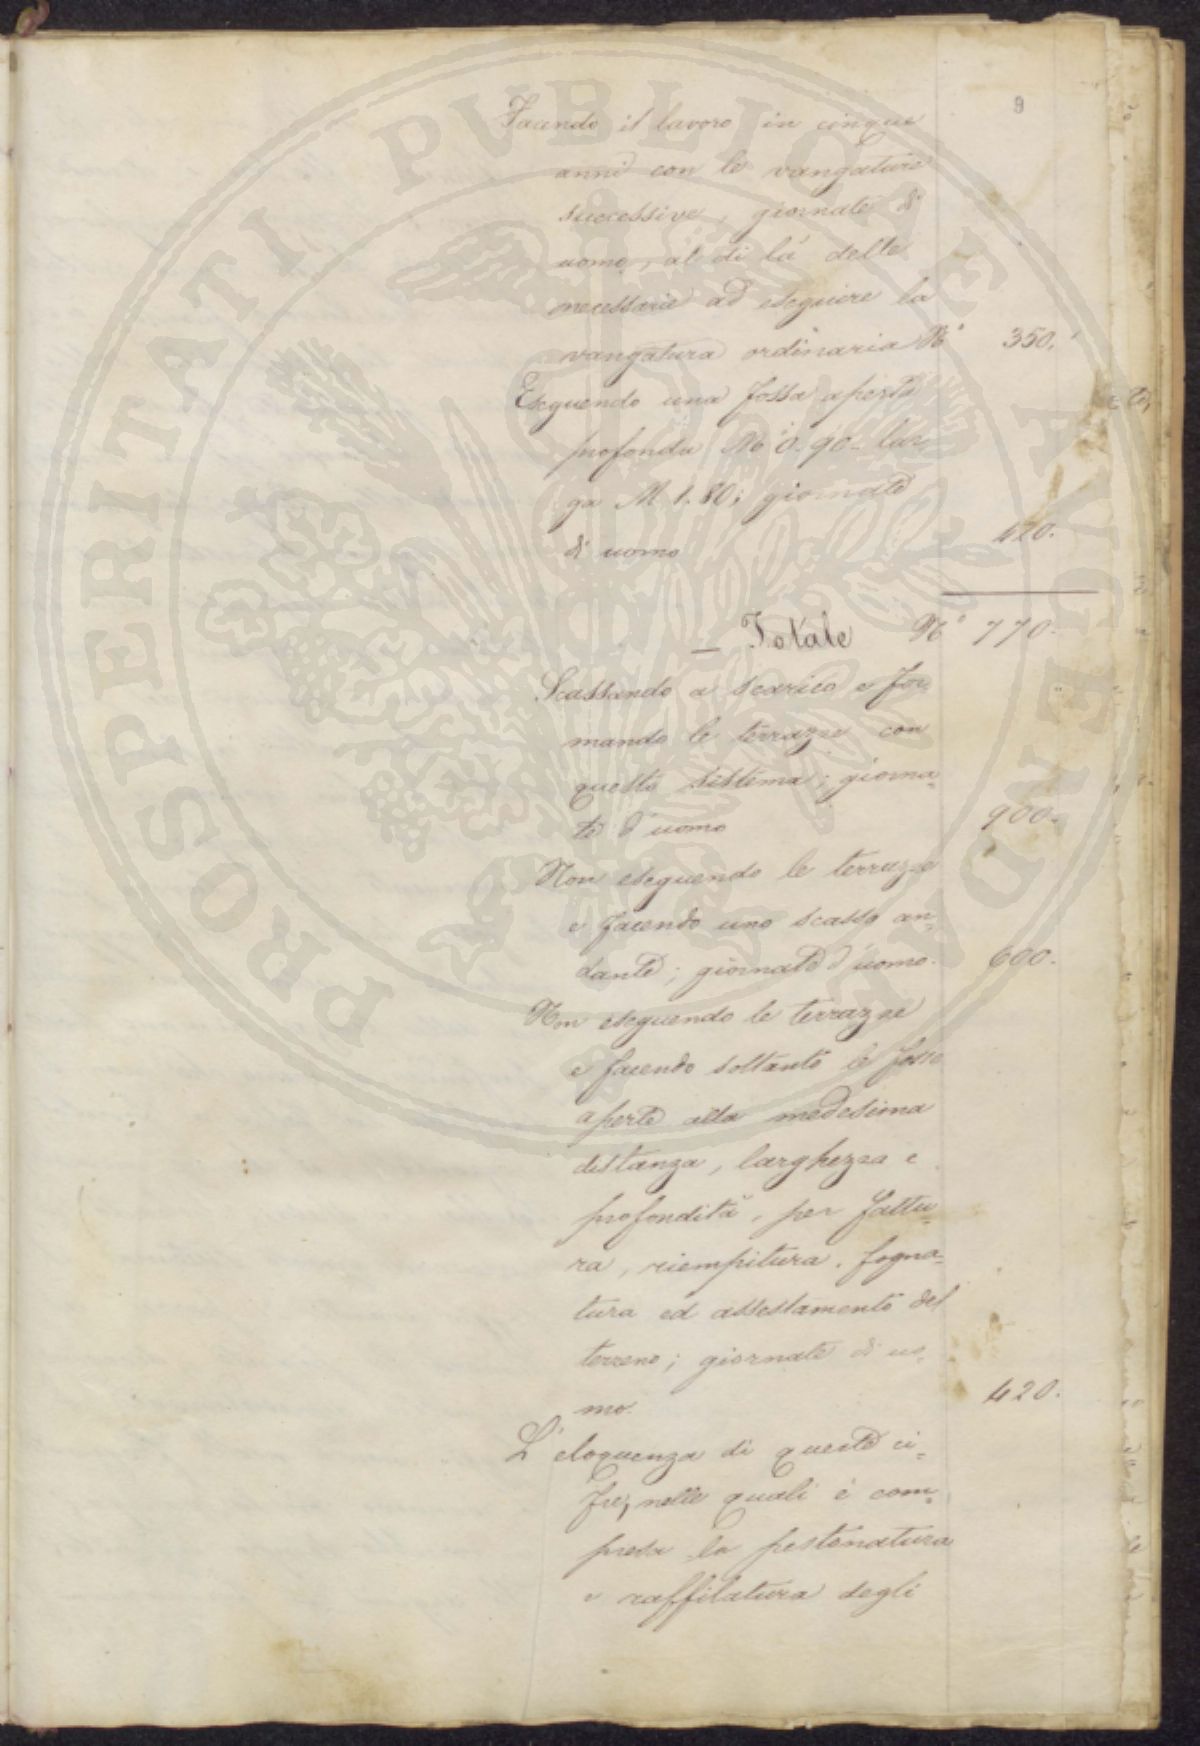 9
Facendo il lavoro in cinque
anni con le vangature
successive, giornate di
uomo, al di là delle
necessarie ad eseguire la
vangatura ordinaria N° 350.
Eseguendo una fossa aperta
profonda M° 0.90 - lar-
ga M. 1.80; giornate
di uomo 420.
Totale N° 770.
Scassando a scarico e for-
mando le terrazze con
questo sistema; giorna-
te d'uomo 900.
Non eseguendo le terrazze
e facendo uno scasso an-
dante; giornate d'uomo. 600.
Non eseguendo le terrazze
e facendo soltanto le fosse
aperte alla medesima
distanza, larghezza e
profondità, per fattu-
ra, riempitura, fogna-
tura ed assestamento del
terreno; giornate di uo-
mo. 420.
L'eloquenza di queste ci-
fre, nelle quali è com-
presa la pestonatura
e raffilatura degli
PROSPERITATI PVBLICAE AVGENDAE